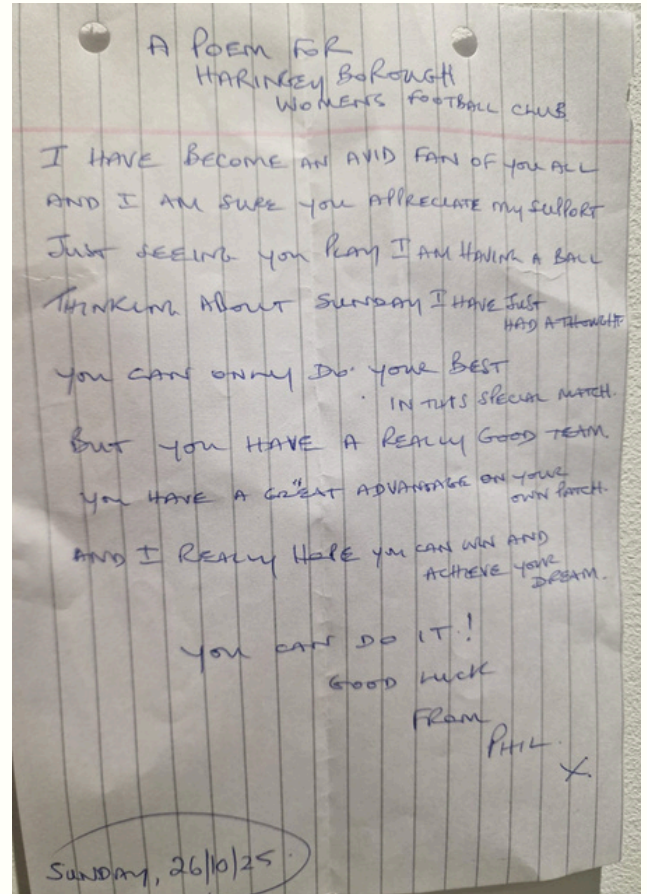 A POEM FOR
HARINGEY BOROUGH
WOMENS FOOTBALL CLUB
I HAVE BECOME AN AVID FAN OF YOU ALL
AND I AM SURE YOU APPRECIATE MY SUPPORT
JUST SEEING YOU PLAY I AM HAVING A BALL
THINKING ABOUT SUNDAY I HAVE JUST
HAD A THOUGHT
YOU CAN ONLY DO YOUR BEST
IN THIS SPECIAL MATCH.
BUT YOU HAVE A REALLY GOOD TEAM
YOU HAVE A GREAT ADVANTAGE ON YOUR
OWN PATCH.
AND I REALLY HOPE YOU CAN WIN AND
ACHIEVE YOUR
DREAM.
YOU CAN DO IT!
GOOD LUCK
FROM
PHIL.
X
SUNDAY, 26/10/25